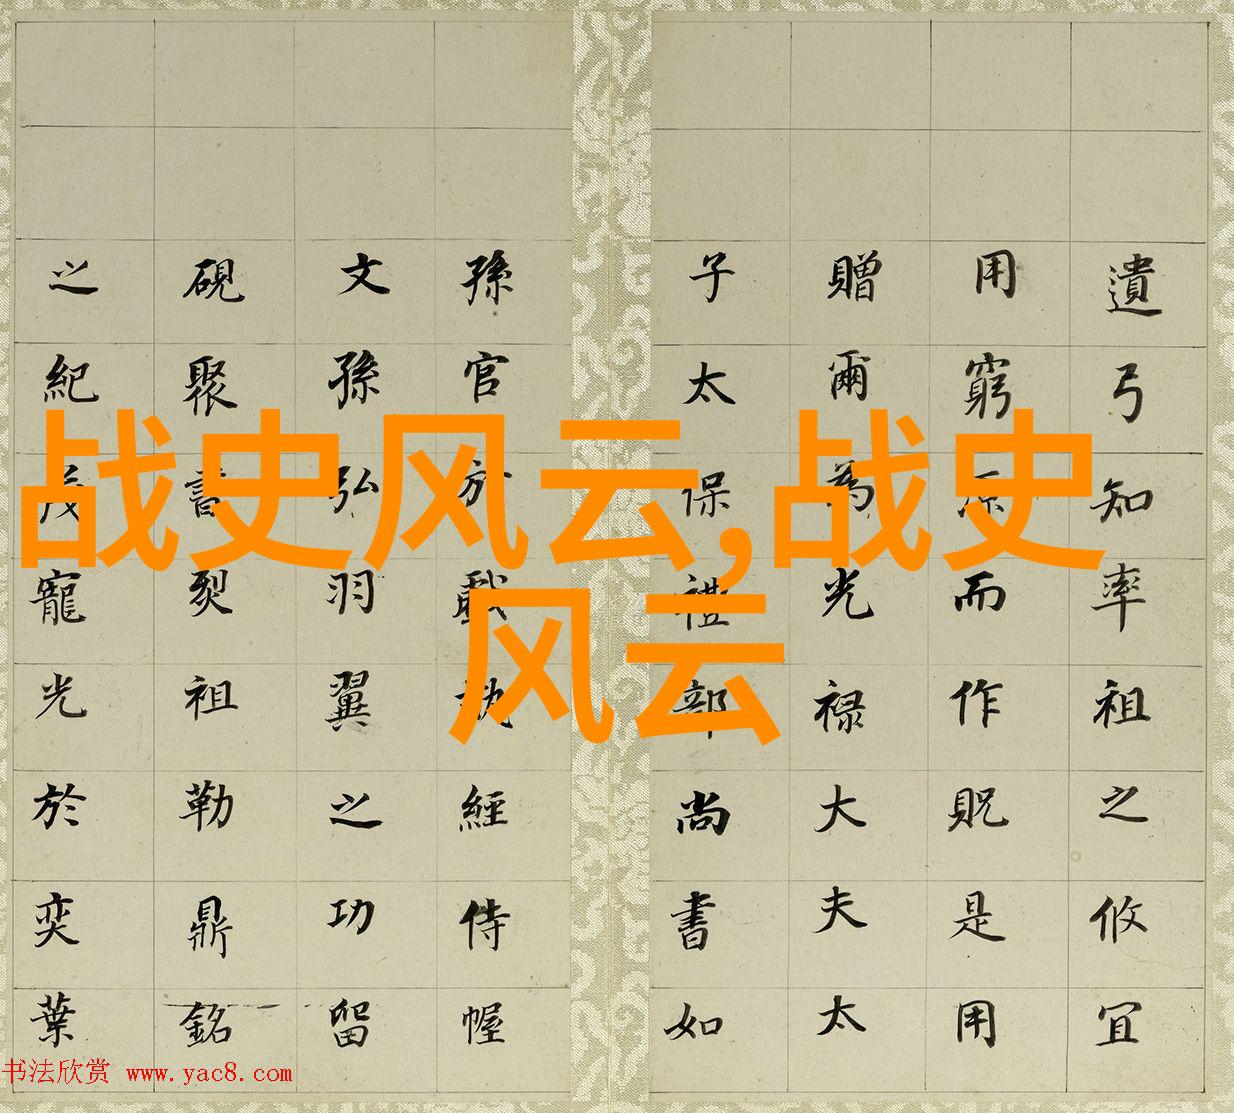 遺弓知率祖之攸宜
用窮而作貺是用
贈爾為光禄大夫太
子太保禮部尚書如
孫官於戲執經侍幄
文孫弘羽翼之功留
硯聚書裂祖勒鼎銘
之紀茂寵光於奕葉
战史风云,战史
风云
书法欣赏 www.yac8.com